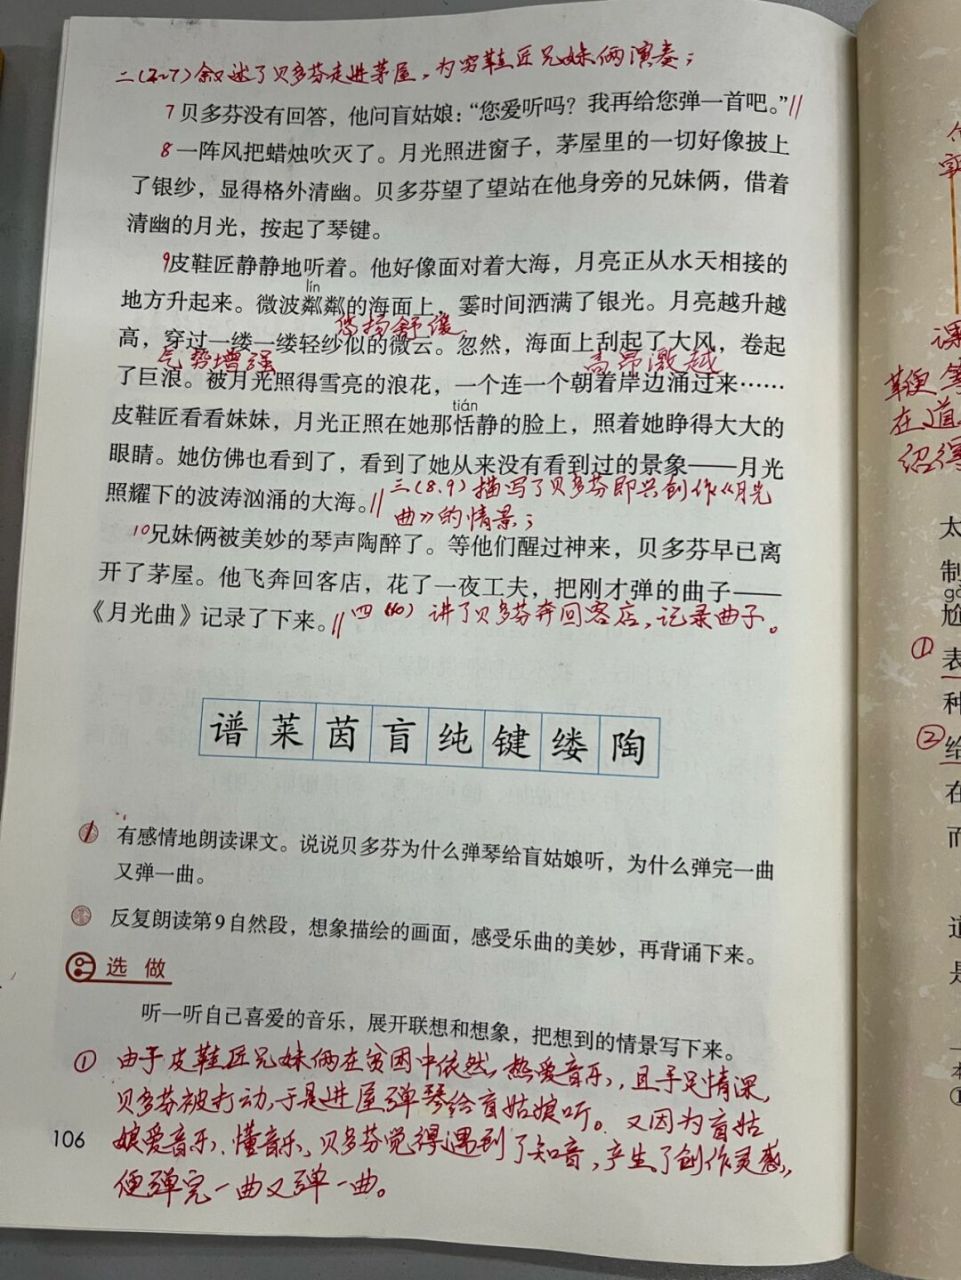 二(2~7)叙述了贝多芬走进茅屋,为穷鞋匠兄妹俩演奏;
7贝多芬没有回答，他问盲姑娘：“您爱听吗？我再给您弹一首吧。”||
8一阵风把蜡烛吹灭了。月光照进窗子，茅屋里的一切好像披上
了银纱，显得格外清幽。贝多芬望了望站在他身旁的兄妹俩，借着
清幽的月光，按起了琴键。
9皮鞋匠静静地听着。他好像面对着大海，月亮正从水天相接的
lín
地方升起来。微波粼粼的海面上，霎时间洒满了银光。月亮越升越
悠扬舒缓
高，穿过一缕一缕轻纱似的微云。忽然，海面上刮起了大风，卷起
气势增强 高昂激越
了巨浪。被月光照得雪亮的浪花，一个连一个朝着岸边涌过来……
tián
皮鞋匠看看妹妹，月光正照在她那恬静的脸上，照着她睁得大大的
眼睛。她仿佛也看到了，看到了她从来没有看到过的景象——月光
照耀下的波涛汹涌的大海。|| 三(8.9)描写了贝多芬即兴创作《月光
曲》的情景;
10兄妹俩被美妙的琴声陶醉了。等他们醒过神来，贝多芬早已离
开了茅屋。他飞奔回客店，花了一夜工夫，把刚才弹的曲子——
《月光曲》记录了下来。|| 四(10)讲了贝多芬奔回客店,记录曲子。
谱莱茵盲纯键缕陶
有感情地朗读课文。说说贝多芬为什么弹琴给盲姑娘听，为什么弹完一曲
又弹一曲。
反复朗读第9自然段，想象描绘的画面，感受乐曲的美妙，再背诵下来。
选做
听一听自己喜爱的音乐，展开联想和想象，把想到的情景写下来。
① 由于皮鞋匠兄妹俩在贫困中依然热爱音乐,且手足情深,
贝多芬被打动,于是进屋弹琴给盲姑娘听。又因为盲姑
娘爱音乐、懂音乐,贝多芬觉得遇到了知音,产生了创作灵感,
便弹完一曲又弹一曲。
106
课
鞭
在道
绍得
太
制
gā
尬
① 表
种
② 给
在
而
道
是